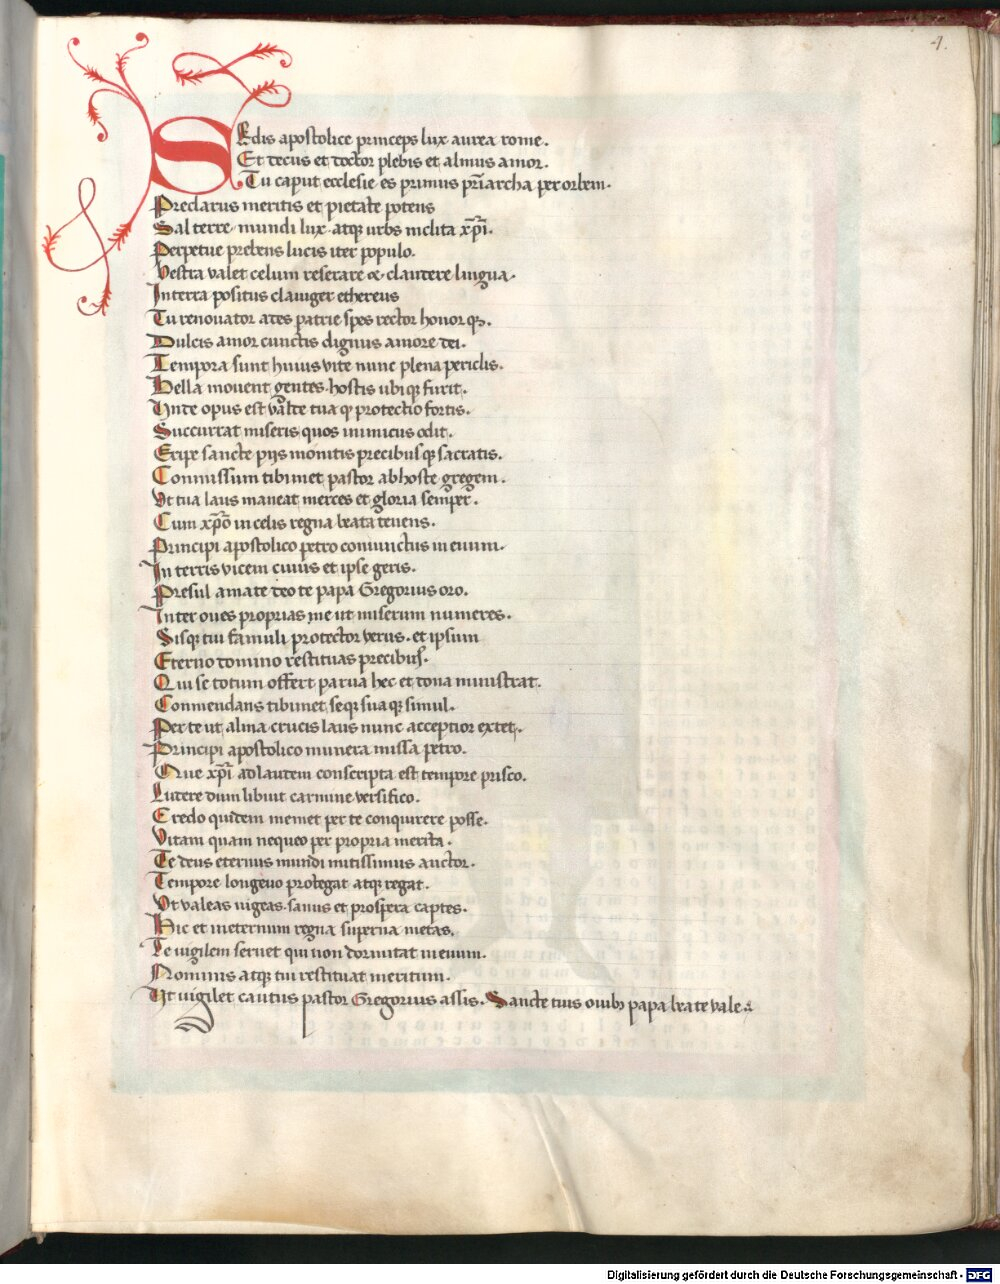 4.
Sedis apostolice princeps lux aurea rome.
Et decus et doctor plebis et almus amor.
Tu caput ecclesie es primus pr̅iarcha per orbem.
Preclarus meritis et pietate potens
Sal terre mundi lux atqꝫ urbs inclita xp̅i.
Perpetue prebens lucis iter populo.
Vestra valet celum reserare & claudere lingua.
In terra positus clauiger ethereus
Tu renouator ades patrie spes rector honorqꝫ.
Dulcis amor cunctis dignus amore dei.
Tempora sunt huius vite nunc plena periclis.
Bella mouent gentes hostis ubiqꝫ furit.
Unde opus est valde tua qꝫ protectio fortis.
Succurrat miseris quos inimicus odit.
Eripe sancte pijs monitis precibusqꝫ sacratis.
Conmissum tibimet pastor ab hoste gregem.
Vt tua laus maneat merces et gloria semper.
Cum xp̅o in celis regna beata tenens.
Principi apostolico petro coniunctus in euum.
In terris vicem cuius et ipse geris.
Presul amate deo te papa Gregorius oro.
Inter oues proprias me ut miserum numeres.
Sisqꝫ tui famuli protector verus. et ipsum
Eterno domino restituas precibus.
Qui se totum offert parua hec et dona ministrat.
Conmendans tibimet seqꝫ suaqꝫ simul.
Per te ut alma crucis laus nunc acceptior extet.
Principi apostolico munera missa petro.
Que xp̅i ad laudem conscripta est tempore prisco.
Ludere dum libuit carmine versifico.
Credo quidem memet per te conquirere posse.
Vitam quam nequeo per propria merita.
Te deus eternus mundi mitissimus auctor.
Tempore longeuo protegat atqꝫ regat.
Vt valeas uigeas sanus et prospera captes.
Hic et in eternum regna superna metas.
Te uigilem seruet qui non dormitat in euum.
Nominis atqꝫ tui restituat meritum.
Ut uigilet cautus pastor Gregorius assis. Sancte tuis ouibꝫ papa beate vale
Digitalisierung gefördert durch die Deutsche Forschungsgemeinschaft - DFG